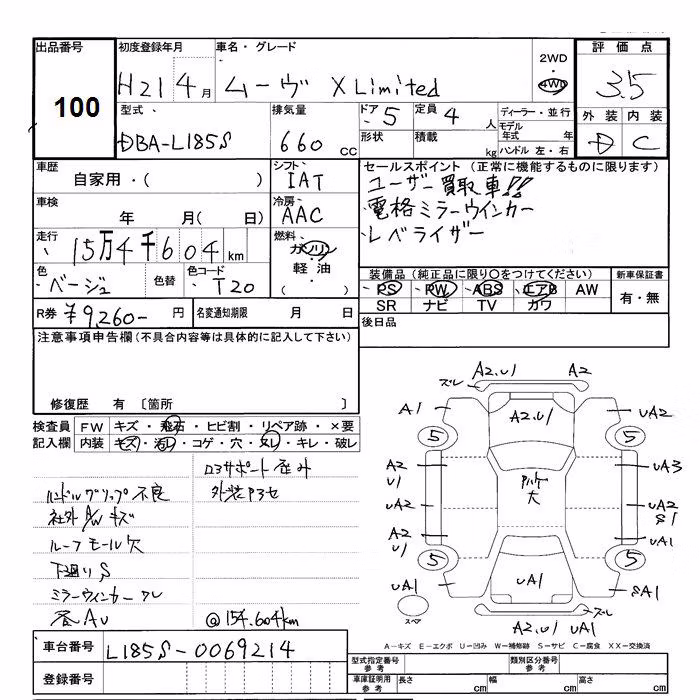 出品番号 初度登録年月 車名・グレード 評価点
100
H21 4月 ムーヴ X Limited 2WD 4WD 3.5
型式 排気量 ドア 5 定員 4人 ディーラー・並行 外装 内装
DBA-L185S 660 cc 形状 積載 kg モデル年式 年 ハンドル 左・右 D C
車歴 シフト セールスポイント (正常に機能するものに限ります)
自家用・( ) IAT ユーザー買取車!!
車検 冷房 電格ミラーウインカー
年 月(日) AAC レベライザー
走行 燃料
15万4千604km ガソリン・軽油・( )
色 色替 色コード 装備品 (純正品に限り○をつけてください) 新車保証書
ベージュ T20 PS PW ABS エアB AW 有・無
SR ナビ TV カワ
R券 ¥9,260- 円 名変通知期限 月 日 後日品
注意事項申告欄(不具合内容等は具体的に記入して下さい)
修復歴 有 〔箇所 〕
検査員 FW キズ・飛石・ヒビ割・リペア跡・×要
記入欄 内装 キズ・汚レ・コゲ・穴・ヌレ・キレ・破レ
コアサポート歪み
ハンドルグリップ不良
社外A/Wキズ
ルーフモール欠
下廻りS
ミラーウインカー
@154.604km
車台番号 L185S-0069214
登録番号
ズレ A2.U1 A2
A1 A2.U1 UA2
5 5
A2 U1 UA3
UA2 大 UA2 S1
A2 U1 UA1
5 5
UA1 UA1 SA1
スペア ズレ
A2.U1 UA1
A-キズ E-エクボ U-凹み W-補修跡 S-サビ C-腐食 XX-交換済
型式指定番号 参考 類別区分番号 参考
車庫証明用 参考 長さ cm 幅 cm 高さ cm